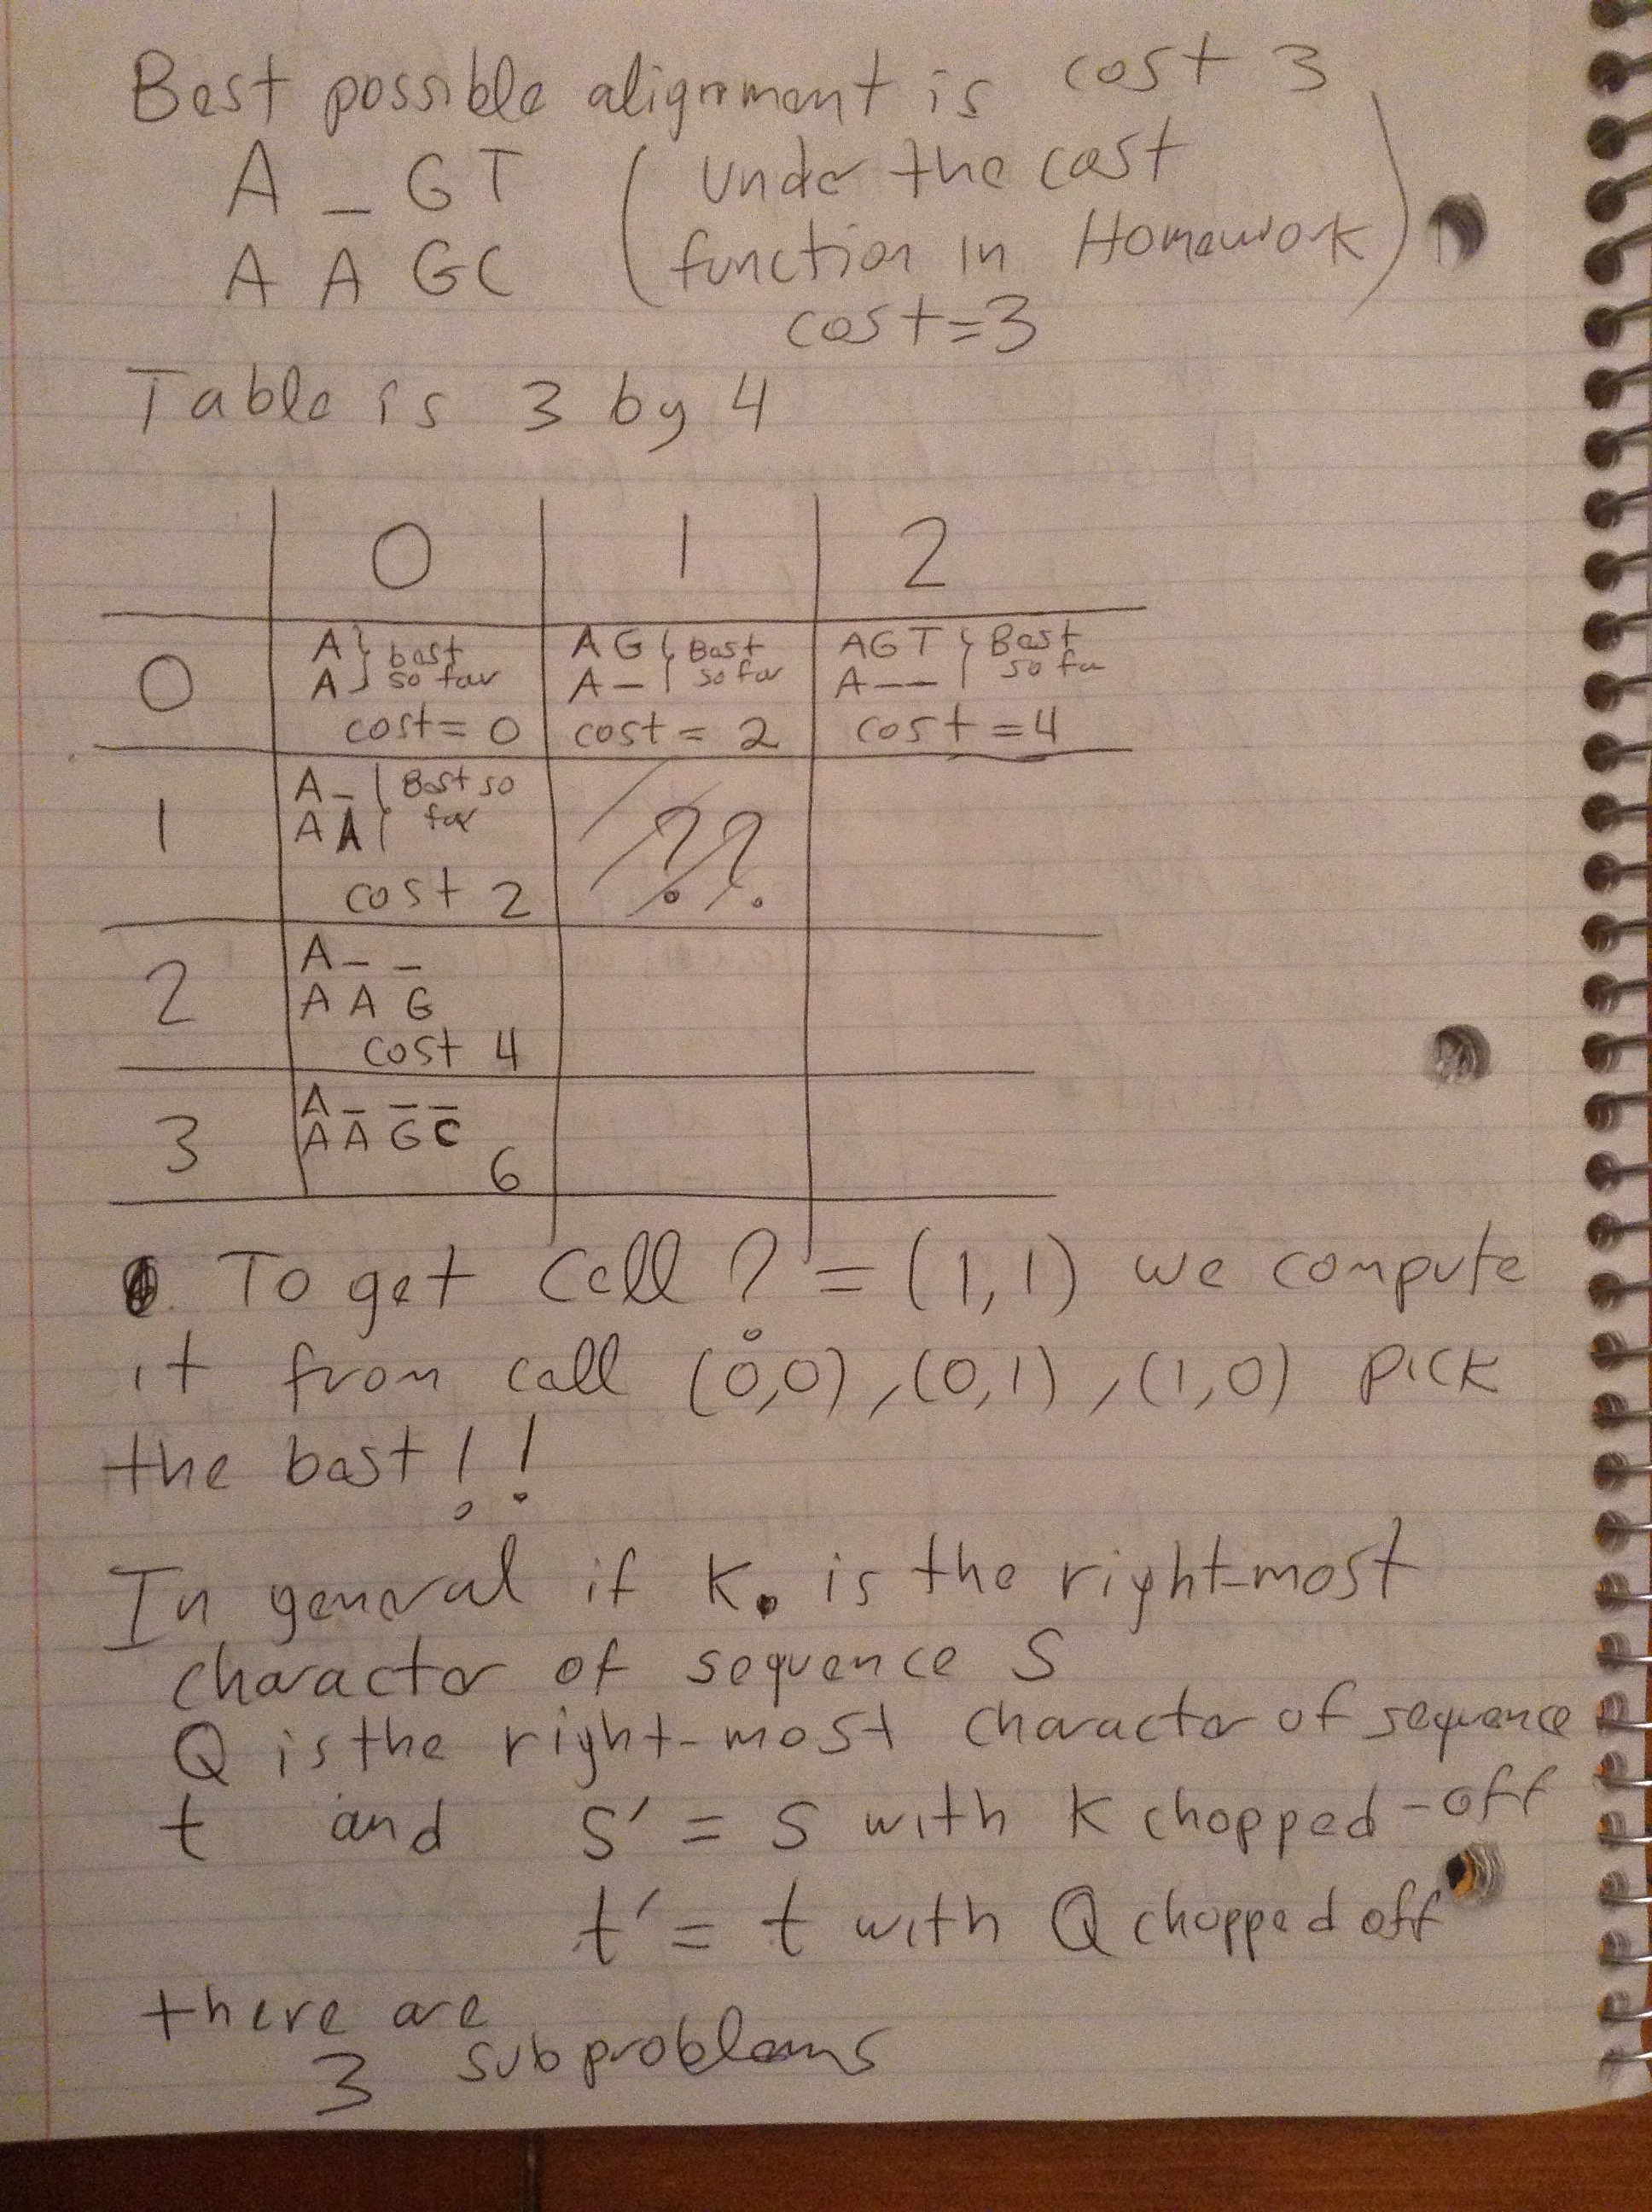 Best possible alignment is cost 3
A _ G T ( under the cost
A A G C function in Homework)
cost=3
Table is 3 by 4
0 1 2
0 A } best AG { Best AGT { Best
A } so far A— { so far A—— { so fa
cost= 0 cost = 2 cost =4
1 A_ { Best so ??
AA { far
cost 2
2 A_ _
A A G
cost 4
3 A _ _ _
A A G C
6
To get Cell ? = (1,1) we compute
it from cell (0,0), (0,1), (1,0) PICK
the best!!
In general if K. is the right-most
character of sequence S
Q is the right-most character of sequence
t and S' = S with K chopped-off
t' = t with Q chopped off
there are
3 subproblems